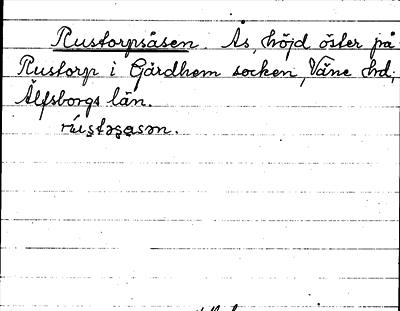 Rustorpsåsen. Ås, höjd öster på
Rustorp i Gärdhem socken, Väne hd,
Älfsborgs län.